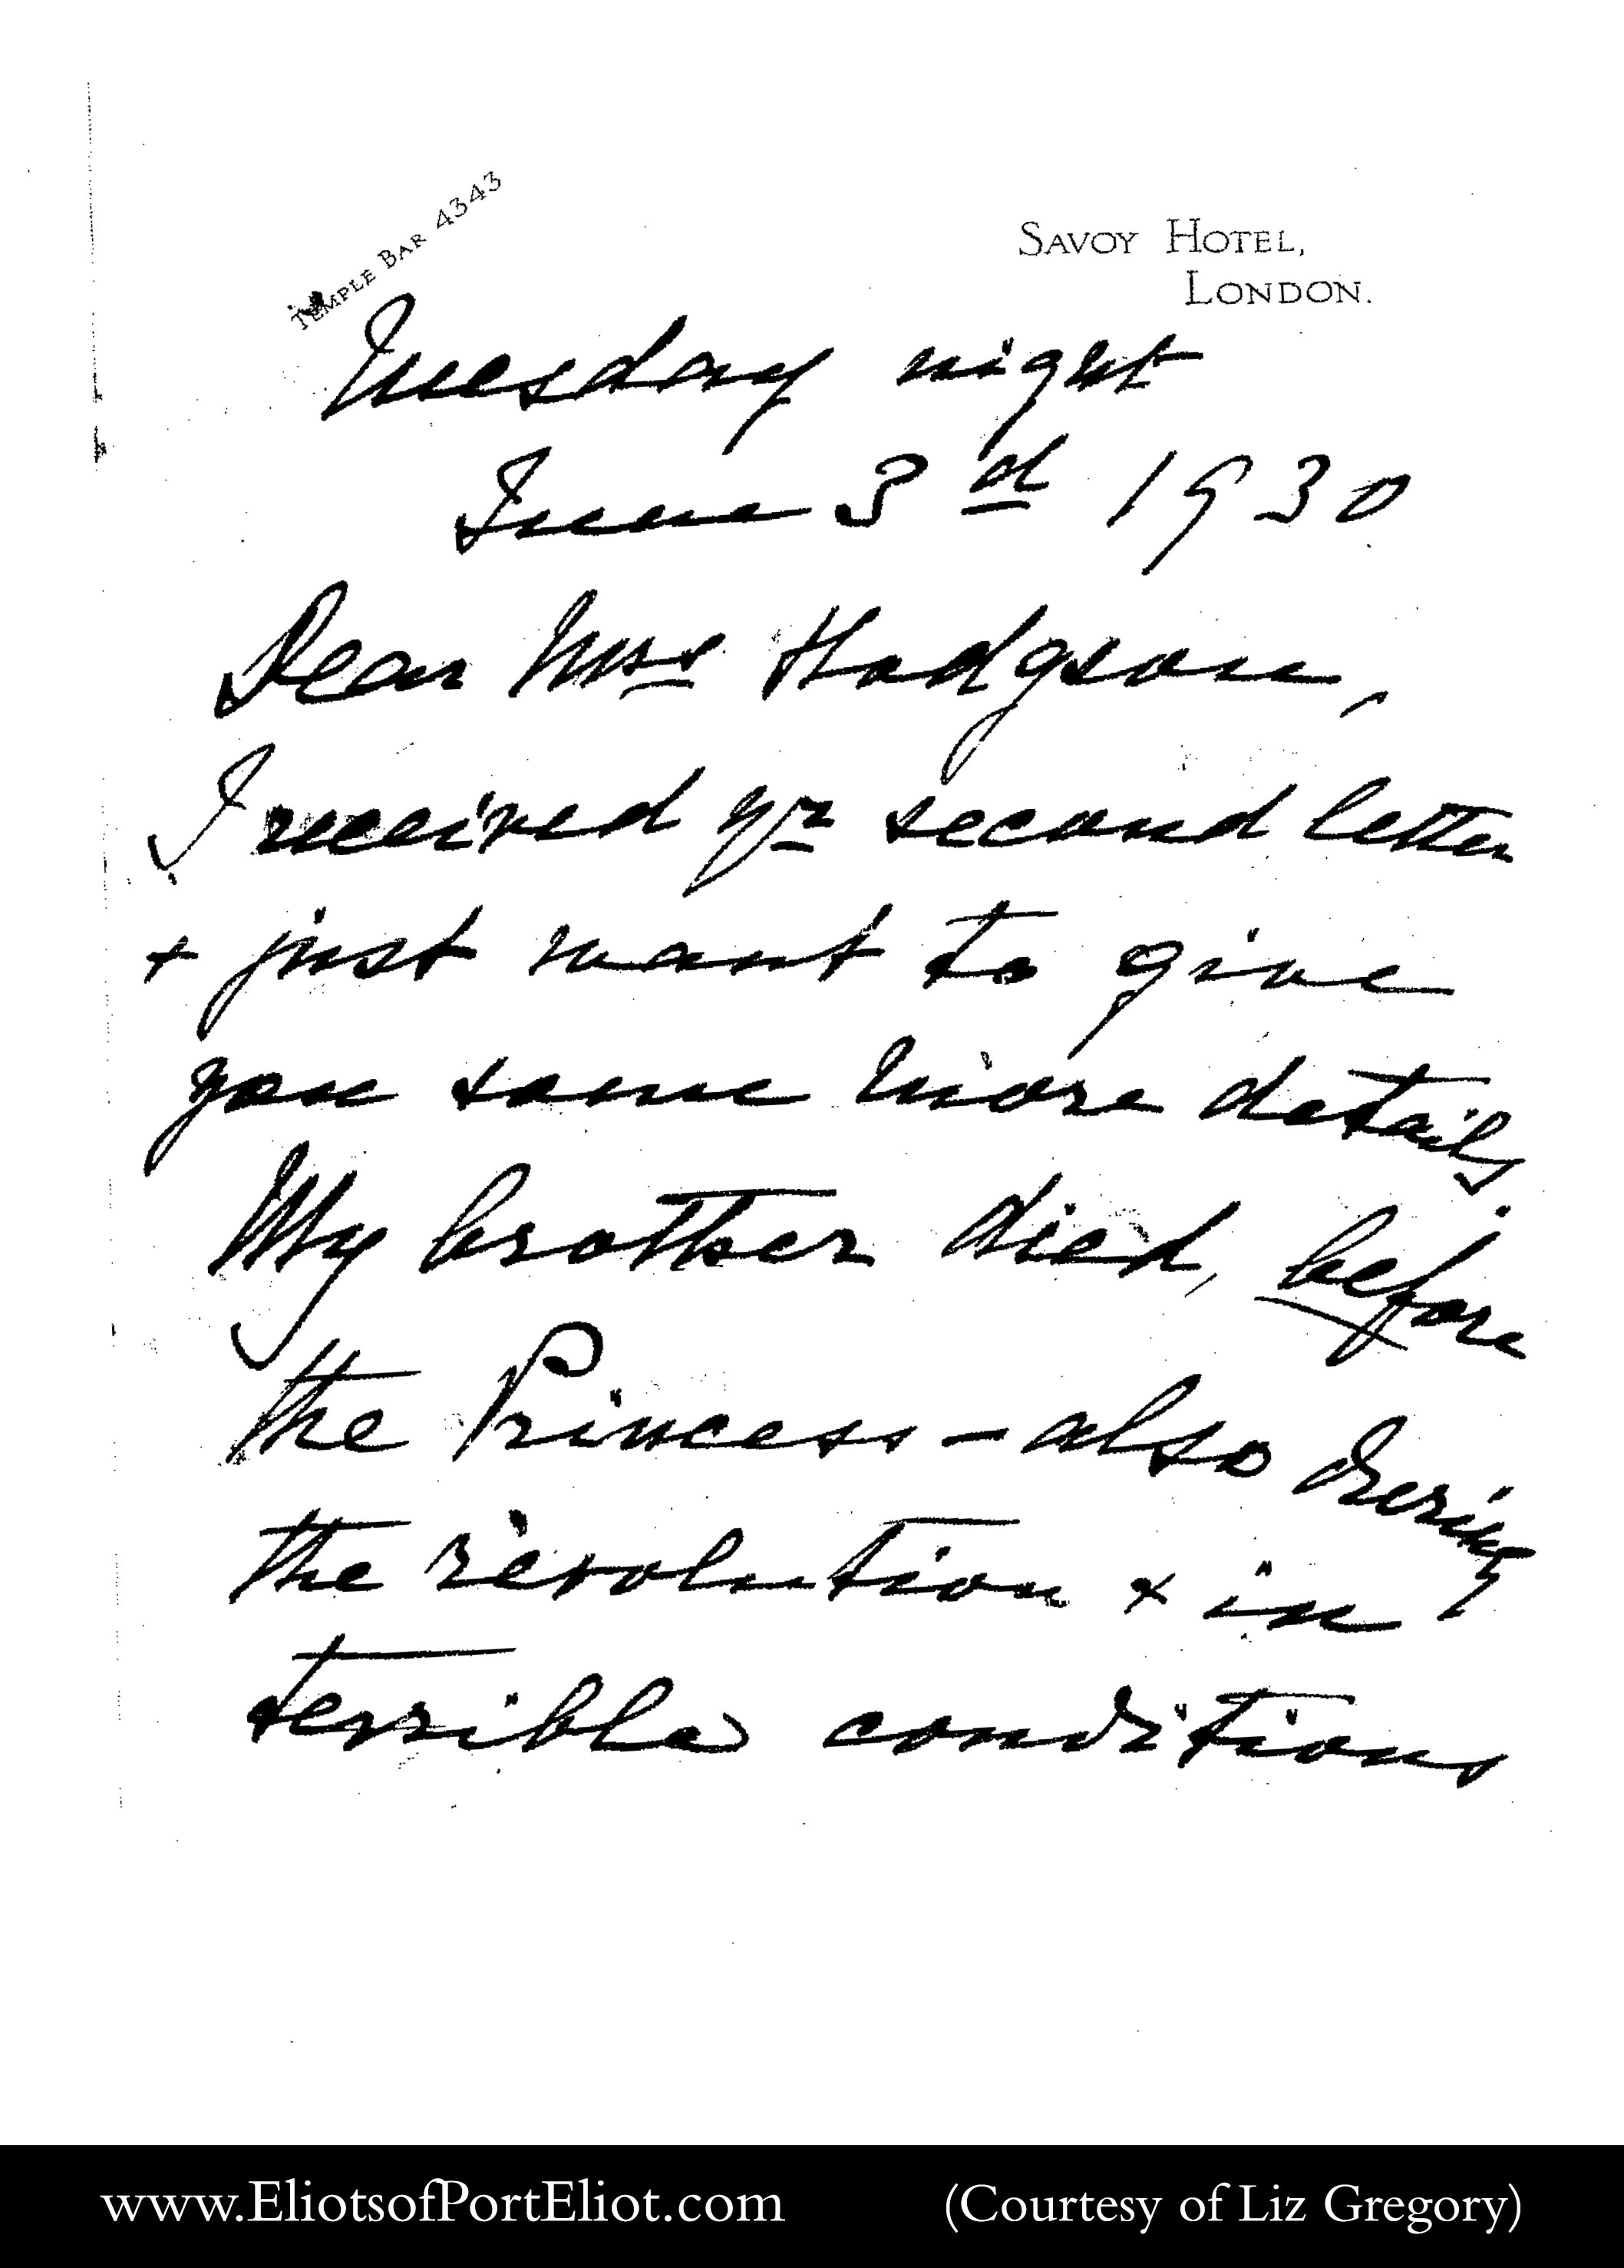 TEMPLE BAR 4343
SAVOY HOTEL,
LONDON.
Tuesday night
June 3rd 1930
Dear Mrs Hodgson,
I received yr second letter
+ just want to give
you some more details.
My brother died, before
the Princess - also during
the revolution + in
terrible conditions
www.EliotsofPortEliot.com
(Courtesy of Liz Gregory)